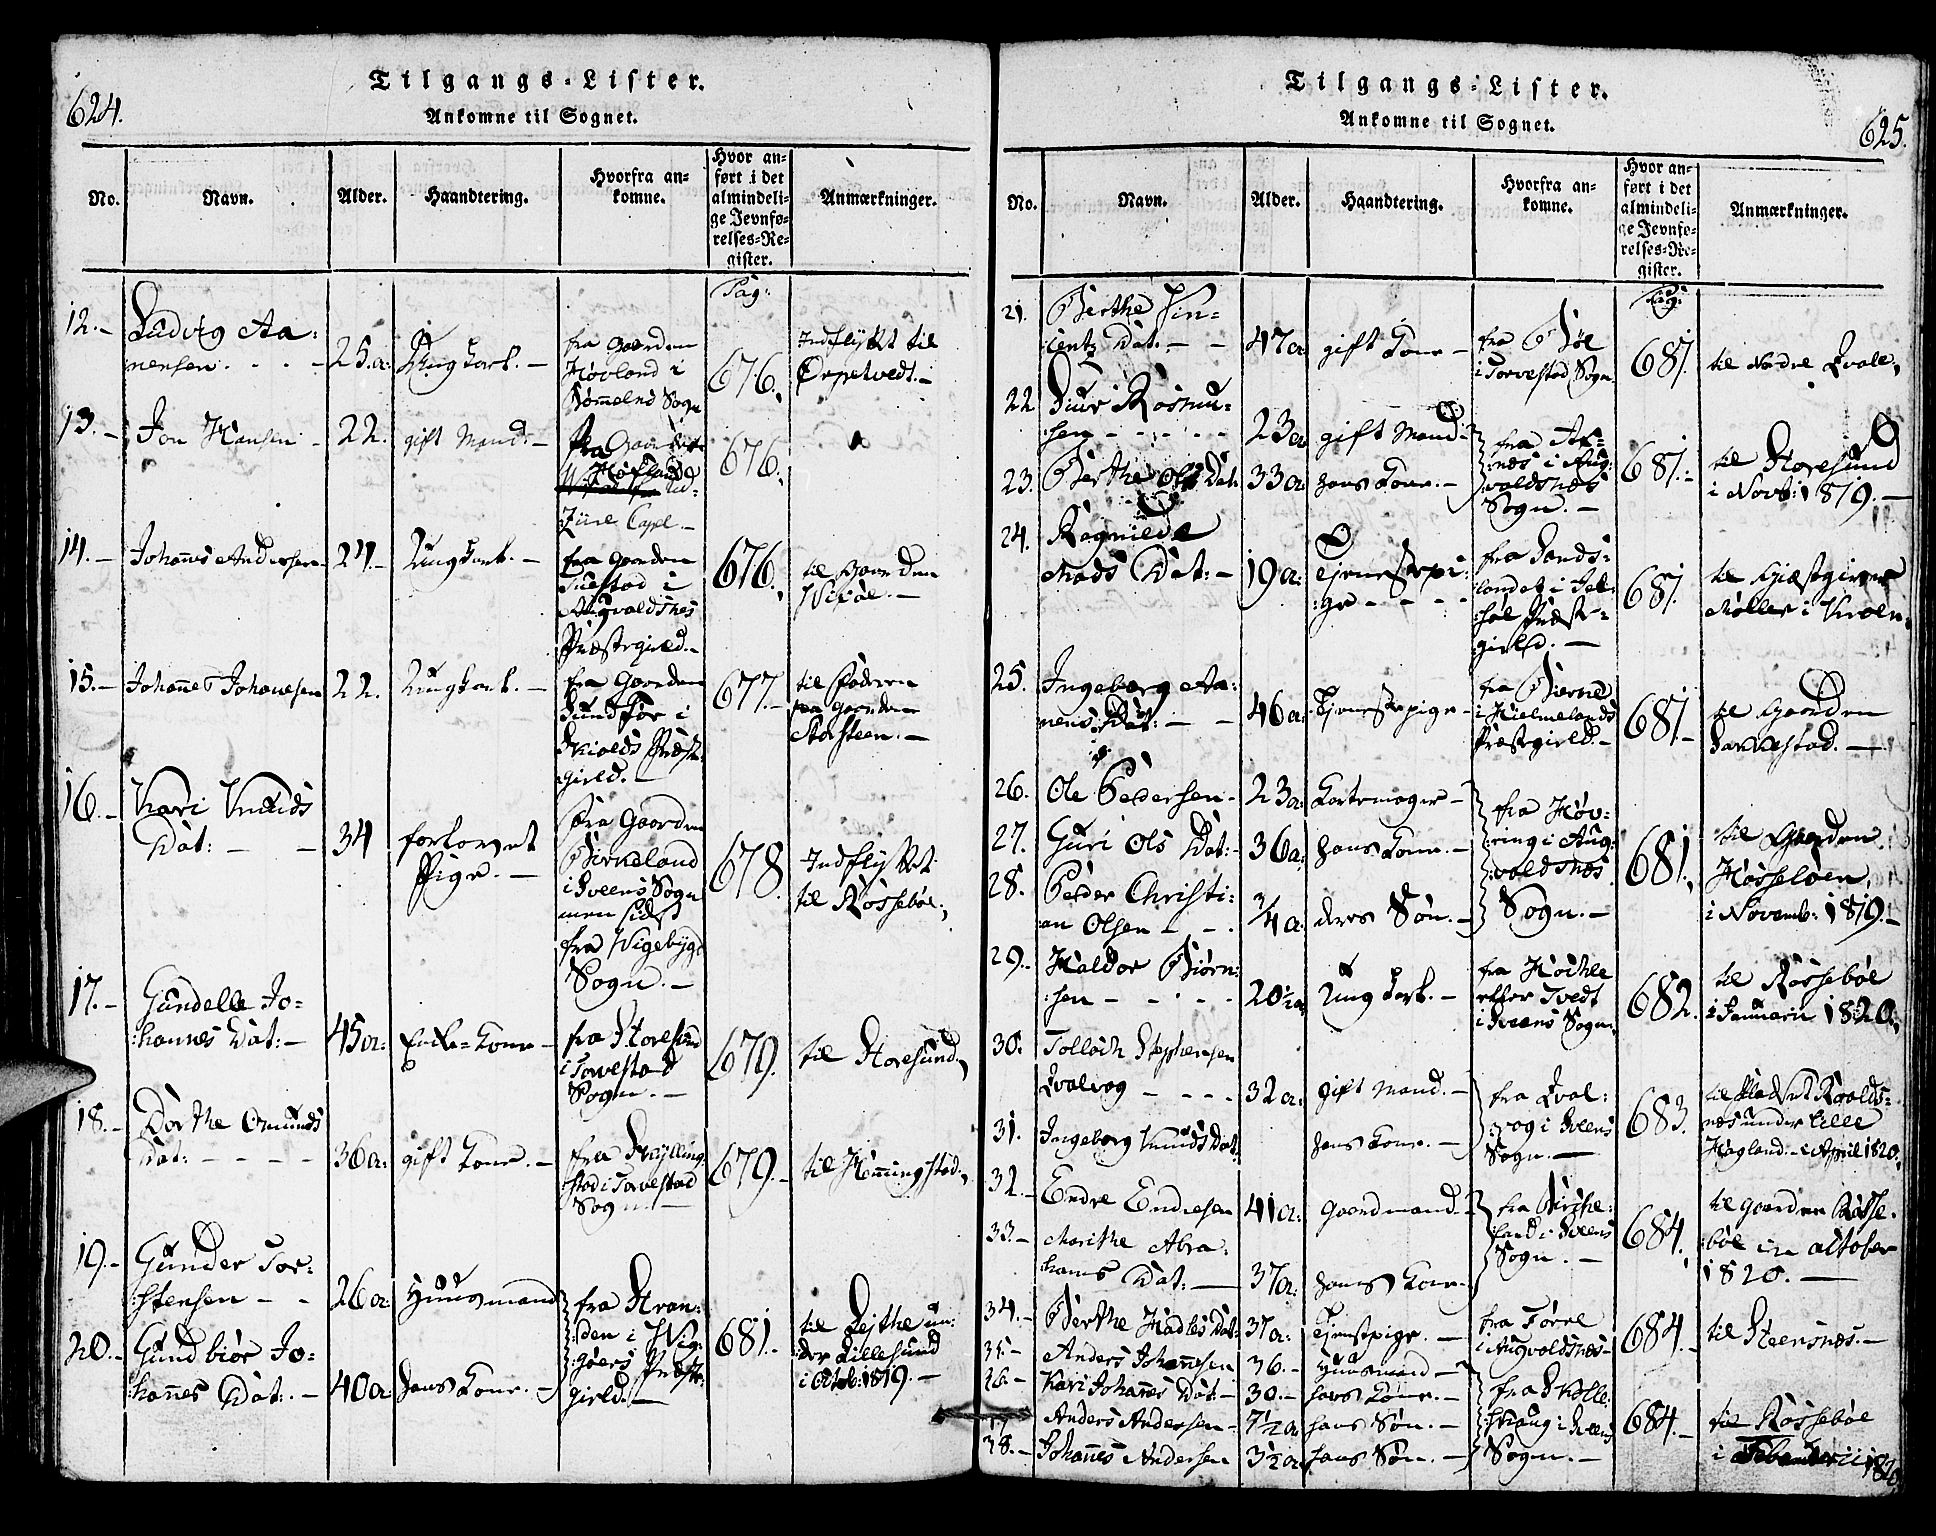 624.
Tilgangs-Lister.
Ankomne til Sognet.
No.
Navn.
Alder.
Haandtering.
Hvorfra an-
komne.
Hvor an-
ført i det
almindeli-
ge Jevnfø-
relses-Re-
gister.
Anmærkninger.
Pag:
12.-
Ludvig Aa:
nensen. - - -
25 a:
Ungkarl. -
fra Gaarden
Høvland i
Sogn
676.
Indflyttet til
Ørpetvedt. -
13. -
Jon Hansen -
22.
gift Mand. -
fra
Capel. -
676.
14. -
Johannes Andersen
24. -
Ungkarl. -
fra Gaarden
i
Augvaldsnes
Præstegield. -
676.
til Gaarden
15. -
Johannes Johannesen
22.
Ungkarl. -
fra Gaarden
Sundfør i
Skiolds Præste-
gield. -
677. -
til Faderen
paa Gaarden
Storsteen. -
16. -
Kari Knuds
Dat: - -
34
forlovet
Pige. -
fra Gaarden
Birkeland
i Sveens Sogn
men sidst
fra Wigebygd
Sogn. -
678
Indflyttet
til Røssebøe.
17. -
Gundelle Jo-
:hannes Dat: -
45 a:
Enke-Kone -
fra Storesund
i Torvestad
Sogn. -
679.
til Storesund.
18. -
Dorthe Omunds
Dat: - - - -
36 a:
gift Kone. -
fra Skylling
stad i Torvestad
Sogn. -
679. -
til Hemmingstad.
19. -
Gunder Tor-
:stensen - -
26 a:
Huusmand
fra Stran:
:den i Wig:
:gøers Præste-
gield. -
681. -
til Lejthe un:
:der Lillesund
i Octob: 1819. -
20. -
Gundbiør Jo-
hannes Dat: -
40 a:
hans Kone. -
625.
Tilgangs-Lister.
Ankomne til Sognet.
No.
Navn.
Alder.
Haandtering.
Hvorfra an-
komne.
Hvor an-
ført i det
almindeli-
ge Jevnfø-
relses-Re-
gister.
Anmærkninger.
Pag:
21.
Berthe Vin-
:centz Dat: - -
47 a:
gift Kone -
fra Bøe
i Torvestad Sogn.
681.
til Nordre Qvale,
22
Siur Rosmu-
:sen - - - - -
23 a:
gift Mand. -
fra
:næs i Aug:
:valdsnæs
Sogn. -
681. -
til Storesund
i Novb: 1819. -
23.
Berthe Ols Dat:
33 a:
hans Kone. -
24.
Ragnilde
Mads Dat: -
19 a:
Tjenestepi:
:ge - - - -
fra Sands-
landet i Jel:
:søe Præste-
gield. -
681.
til Giæstgiver
Møller i Kroken.
25.
Ingeborg Aa:
:nens Dat: - -
46 a:
Tjenestepige -
fra
i Hielmelands
Præstegield. -
681. -
til Gaarden
. -
26.
Ole Pedersen -
23 a:
-
fra Høv-
:ring i Aug:
:valdsnæs
Sogn. -
681.
til Gaarden
Hasseløen,
i Novemb: 1819. -
27.
Guri Ols Dat: -
36 a:
hans Kone. -
28.
Peder Christi-
:an Olsen - - -
3/4 a:
deres Søn. -
29. -
Haldor Biørn:
:sen - - - - -
20 1/2 a:
Ung Karl. -
fra
eller Tvedt
i Sveens Sogn.
682.
til Røssebøe
i Januarii 1820.
30.
Tollach Stephensen
Qvalvog - - - -
32 a:
gift Mand. -
fra Qval:
:vog i Sveens
Sogn. -
683.
til Pladset Roalds-
næs under Lille
Hagland. - i April 1820.
31.
Ingeborg Knuds Dat:
hans Kone. -
32. -
Endre Endresen
41 a:
Gaardmand. -
fra Birke-
:land i Sveens
Sogn. -
684.
til Gaarden Røsse-
bøe in Octobr
1820. -
33. -
Marithe Abra-
hams Dat: -
37 a:
hans Kone -
34. -
Berthe Hadles Dat:
37 a:
Tjenstpige. -
fra Førre
i Augvaldsnæs -
684. -
til Steensnæs. -
35. -
Anders Johannesen
36. -
Huusmand -
fra
:skaug i Sveens
Sogn. -
684. -
til Røssebøe
i 1820
36. -
Kari Johannes Dat: -
30. -
hans Kone. -
37. -
Anders Andersen -
7 1/2 a:
hans Søn. -
38. -
Johannes Andersen
3 1/2 a:
hans Søn. -